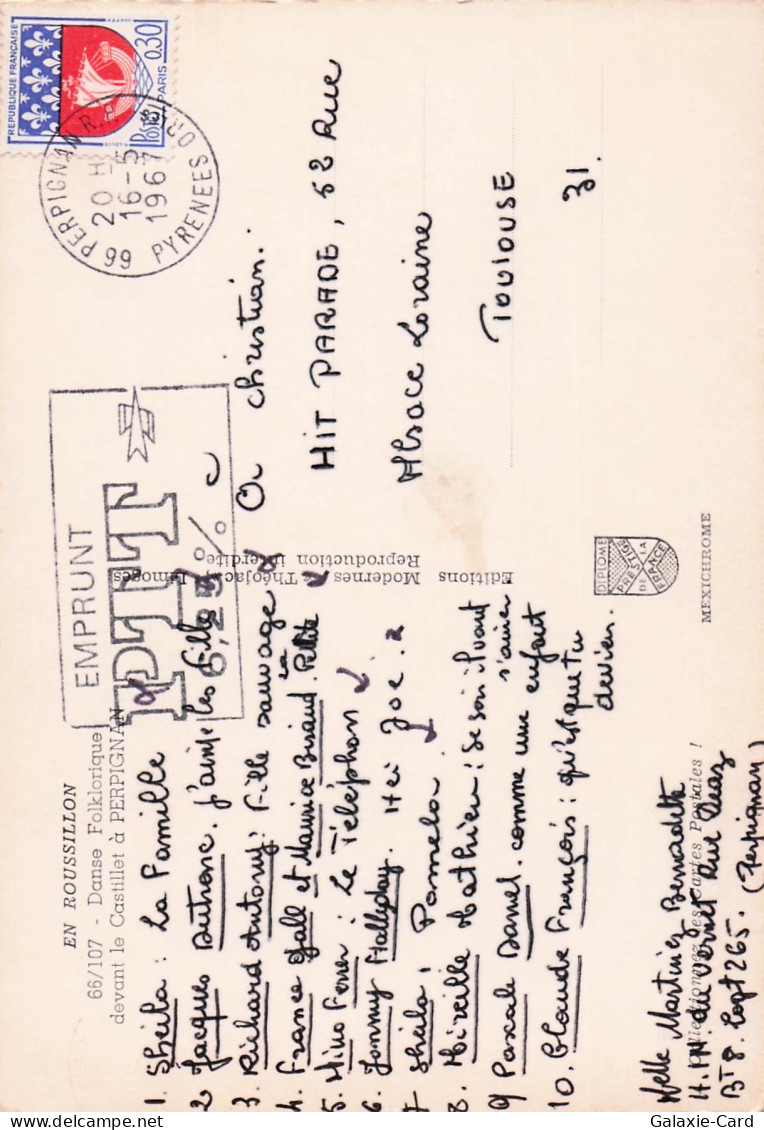 EN ROUSSILLON
66/107 - Danse Folklorique
devant le Castillet à PERPIGNAN
1. Sheila : La Famille
2 Jacques Dutronc. j'aime les filles
3. Richard Antony: Fille sauvage
4. France Gall et Maurice Biraud. La Petite
5. Nino Ferrer : Le Téléphon
6. Jonny Hallyday. Hei Joe.
7 Sheila, Pamela
8. Mireille Mathieu : Se soir ils vont
s'aimer
9 Pascale Danel. comme une enfant
10. Claude François : qu'est que tu
devien.
Melle Martinez Bernadette
H.L.M. du Vernet Rue Diaz
BT 8. Logt 265. (Perpignan)
Collectionnez les Cartes Postales !
EMPRUNT
PTT
6,25%
66 PERPIGNAN R.P.
20 H
16-5
1967
PYRENEES ORles
REPUBLIQUE FRANÇAISE
0,30
Postes
PARIS
Ou christian.
HIT PARADE, 52 Rue
Alsace Loraine
TOULOUSE
31.
Editions Modernes - Théojac - Limoges
Reproduction interdite
DIPLOME
PRESTIGE
DE LA
FRANCE
MEXICHROME
Galaxie-Card